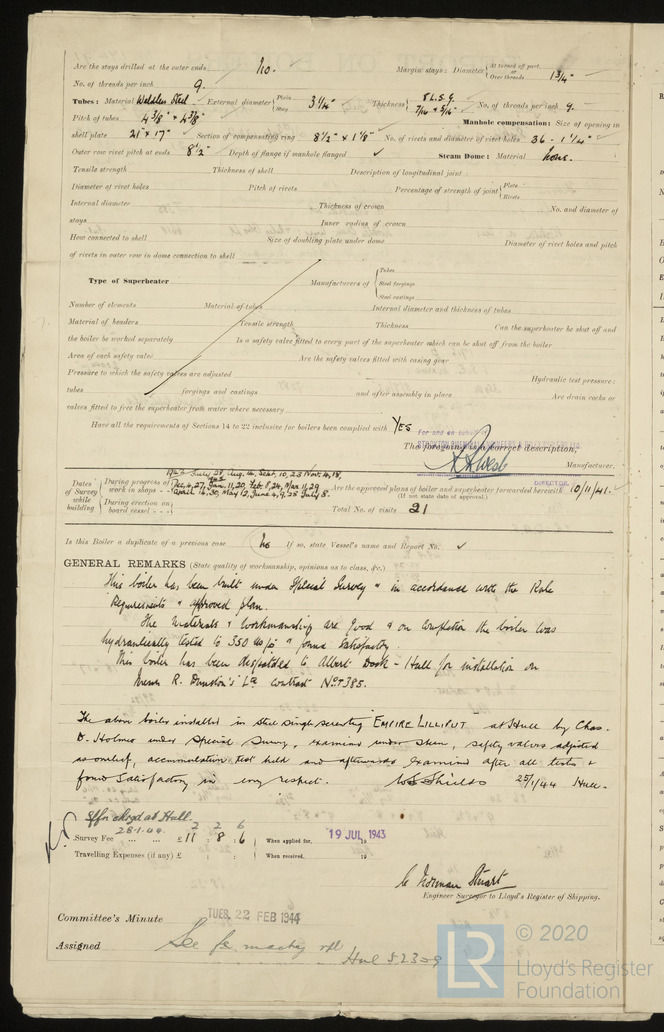 Are the stays drilled at the outer ends No. Margin stays: Diameter { At turned off part, or Over threads 1 3/4"
No. of threads per inch 9.
Tubes: Material Weldless Steel External diameter { Plain Stay 3 1/4" Thickness { 8 L.S.G 7/16 & 5/16" No. of threads per inch 9.
Pitch of tubes 4 3/8" x 4 3/8" Manhole compensation: Size of opening in
shell plate 21" x 17" Section of compensating ring 8 1/2" x 1 1/8" No. of rivets and diameter of rivet holes 36 - 1 1/4"
Outer row rivet pitch at ends 8 1/2" Depth of flange if manhole flanged ✓ Steam Dome: Material None.
Tensile strength Thickness of shell Description of longitudinal joint
Diameter of rivet holes Pitch of rivets Percentage of strength of joint { Plate Rivets
Internal diameter Thickness of crown No. and diameter of
stays Inner radius of crown
How connected to shell Size of doubling plate under dome Diameter of rivet holes and pitch
of rivets in outer row in dome connection to shell
Type of Superheater Manufacturers of { Tubes Steel forgings Steel castings
Number of elements Material of tubes Internal diameter and thickness of tubes
Material of headers Tensile strength Thickness Can the superheater be shut off and
the boiler be worked separately Is a safety valve fitted to every part of the superheater which can be shut off from the boiler
Area of each safety valve Are the safety valves fitted with easing gear
Pressure to which the safety valves are adjusted Hydraulic test pressure:
tubes forgings and castings and after assembly in place Are drain cocks or
valves fitted to free the superheater from water where necessary
Have all the requirements of Sections 14 to 22 inclusive for boilers been complied with YES
For and on behalf of
The foregoing is a correct description,
DIRECTOR. Manufacturer.
Dates of Survey while building { During progress of work in shops - - 1942 July 28, Aug. 14, Sept. 10, 23 Nov. 4, 18,
Dec. 4, 27, Jan. 11, 20, Feb. 8, 24, Mar. 11, 29
April 16, 30, May 12, June 4, 9, 25 July 8.
During erection on board vessel - - -
Are the approved plans of boiler and superheater forwarded herewith 10/11/41.
(If not state date of approval.)
Total No. of visits 21
Is this Boiler a duplicate of a previous case No If so, state Vessel's name and Report No. ✓
GENERAL REMARKS (State quality of workmanship, opinions as to class, &c.)
This boiler has been built under Special Survey & in accordance with the Rule
Requirements & approved plan.
The Materials & Workmanship are good & on completion the boiler was
hydraulically tested to 350 lbs/□" & found satisfactory.
This boiler has been despatched to Albert Dock - Hull for installation on
Messrs R. Dunston's Ltd contract No T385.
The above boiler installed in steel single screw tug "EMPIRE LILLIPUT" at Hull by Chas.
D. Holmes under special survey, examined under steam, safety valves adjusted
as on relief, accumulation test held and afterwards examined after all tests &
found satisfactory in every respect. W. Shields 25/1/44 Hull.
at Hull
28.1.44 2 2 6
Survey Fee ... ... £ 11 : 8 : 6 When applied for, 19 JUL 1943 19
Travelling Expenses (if any) £ : : When received, 19
C. Norman Stuart
Engineer Surveyor to Lloyd's Register of Shipping.
Committee's Minute TUES. 22 FEB 1944
Assigned See fe machy rpt
Hul 52309
LR © 2020
Lloyd's Register
Foundation